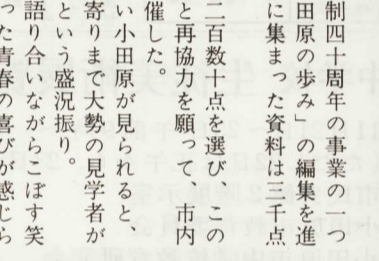 制四十周年の事業の一つ
田原の歩み」の編集を進
に集まった資料は三千点
二百数十点を選び この
と再協力を願って 市内
催した。
い小田原が見られると、
寄りまで大勢の見学者が
という盛況振り。
語り合いながらこぼす笑
った青春の喜びが感じら